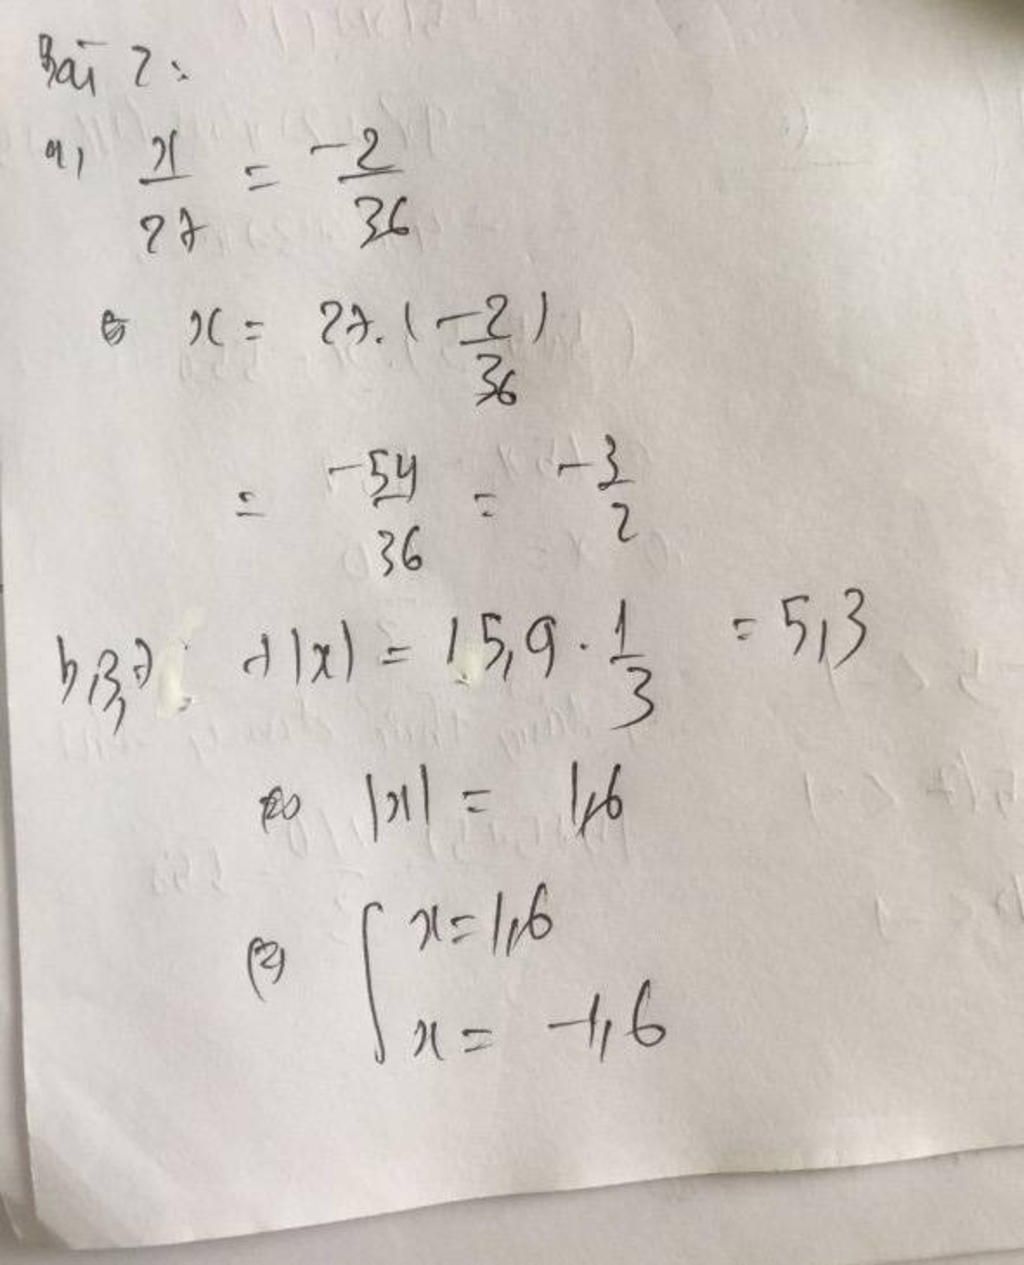 Bài 2:
a, x/27 = -2/36
x = 27.(-2/36)
= -54/36 = -3/2
b, 3,7 + |x| = 15,9 . 1/3 = 5,3
|x| = 1,6
[ x = 1,6
x = -1,6